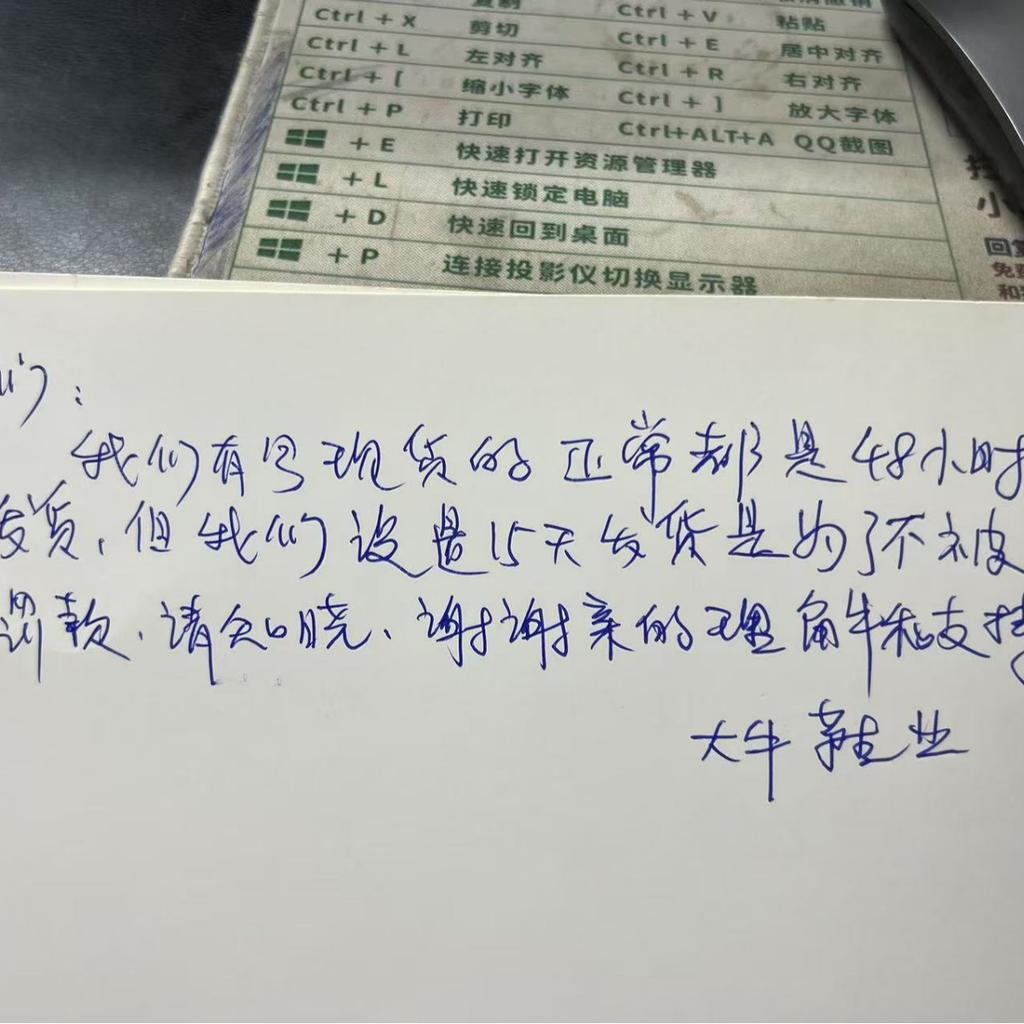 复制
Ctrl + X 剪切 Ctrl + V 粘贴
Ctrl + L 左对齐 Ctrl + E 居中对齐
Ctrl + [ 缩小字体 Ctrl + R 右对齐
Ctrl + P 打印 Ctrl + ] 放大字体
Ctrl+ALT+A QQ截图
+ E 快速打开资源管理器
+ L 快速锁定电脑
+ D 快速回到桌面
+ P 连接投影仪切换显示器
小
回复
免费
们:
我们有号现货的正常都是48小时
发货,但我们设置15天发货是为了不被
罚款.请知晓、谢谢亲的理解和支持
大牛鞋业